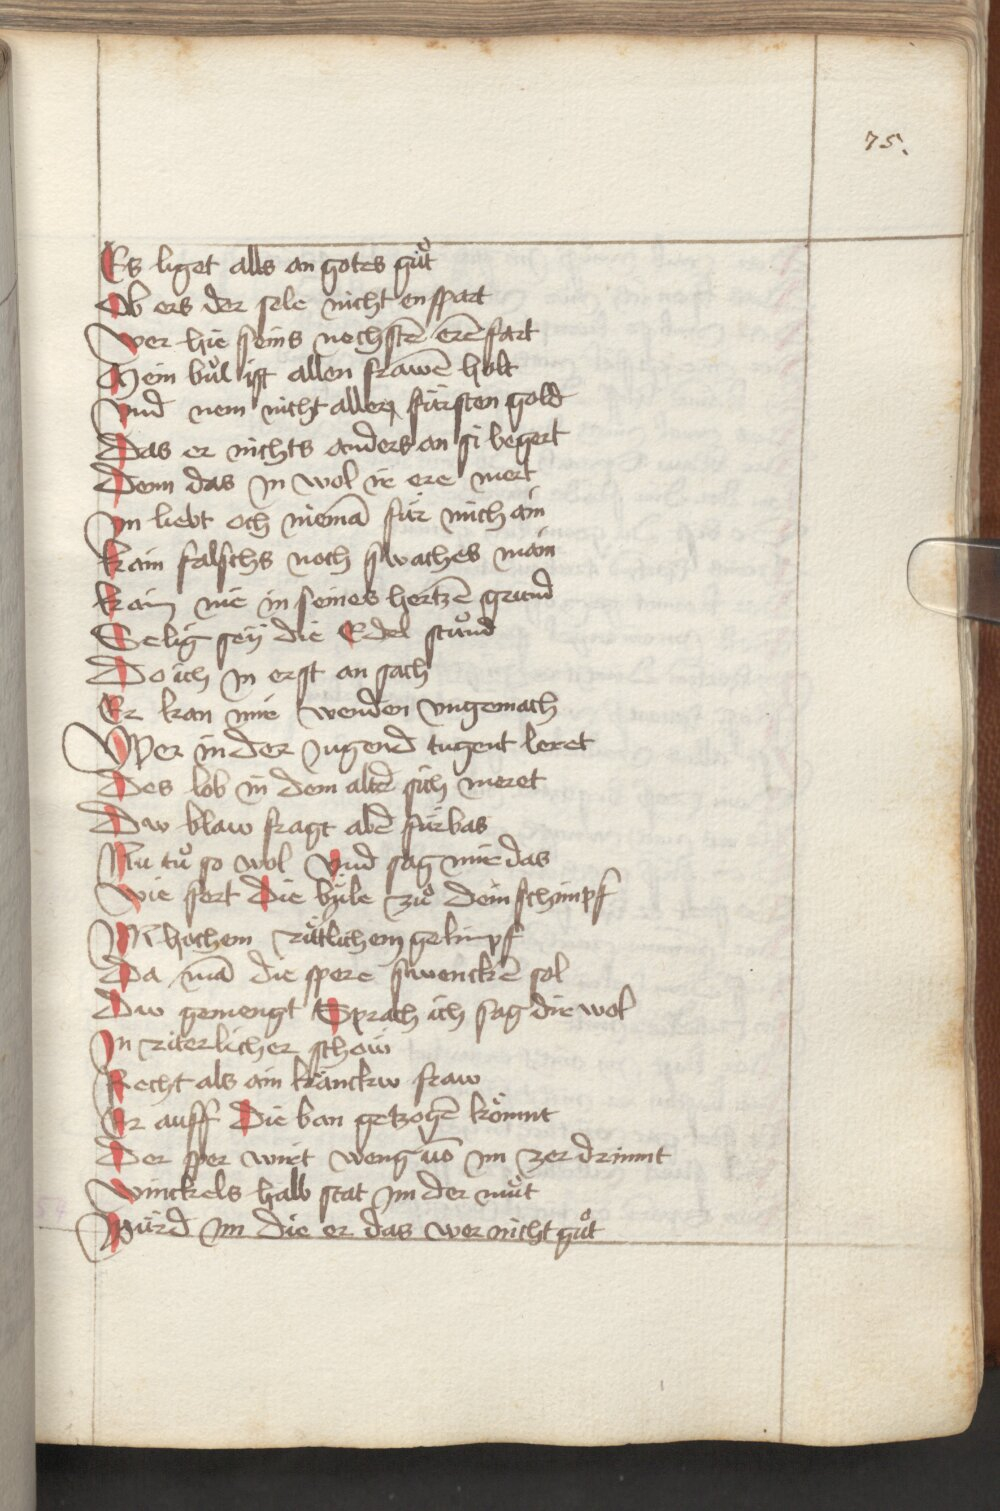 75.
Es liget alls an gotes gůt
Ob ers der sele nicht enspart
Wer hie seins nechstē erē fart
Mein bůl ist allen frawē holt
Vnd nem nicht aller fürsten gold
Das er nichts anders an si begert
Denn das Jn wol ir ere mert
Jm liebt och niemā für mich ain
Kain falschs noch swaches main
Kam nie in seines hertzē grund
Selig seÿ die Edel stůnd
Do ich Jn erst an sach
Er kan mir wenden vngemach
Wer in der Jugend tugent leret
Des lob in dem alter sich meret
Dw blaw fragt aber fürbas
Nu tů so wol Vnd sag mir das
Wie fert Die bůle zů dem schimpf
Mit hochem rütlichem gelimpf
Da mā die spere swenckē sol
Dw gemengt Sprach ich sag dir wol
Jn riterlicher schow
Recht als ain kranckw fraw
Er auff Die ban getzogē kömnt
Der sper wirt weng vō im zerdrinnt
Winckels halb stat Jm der můt
Würd Jm die er das wer nicht gůt